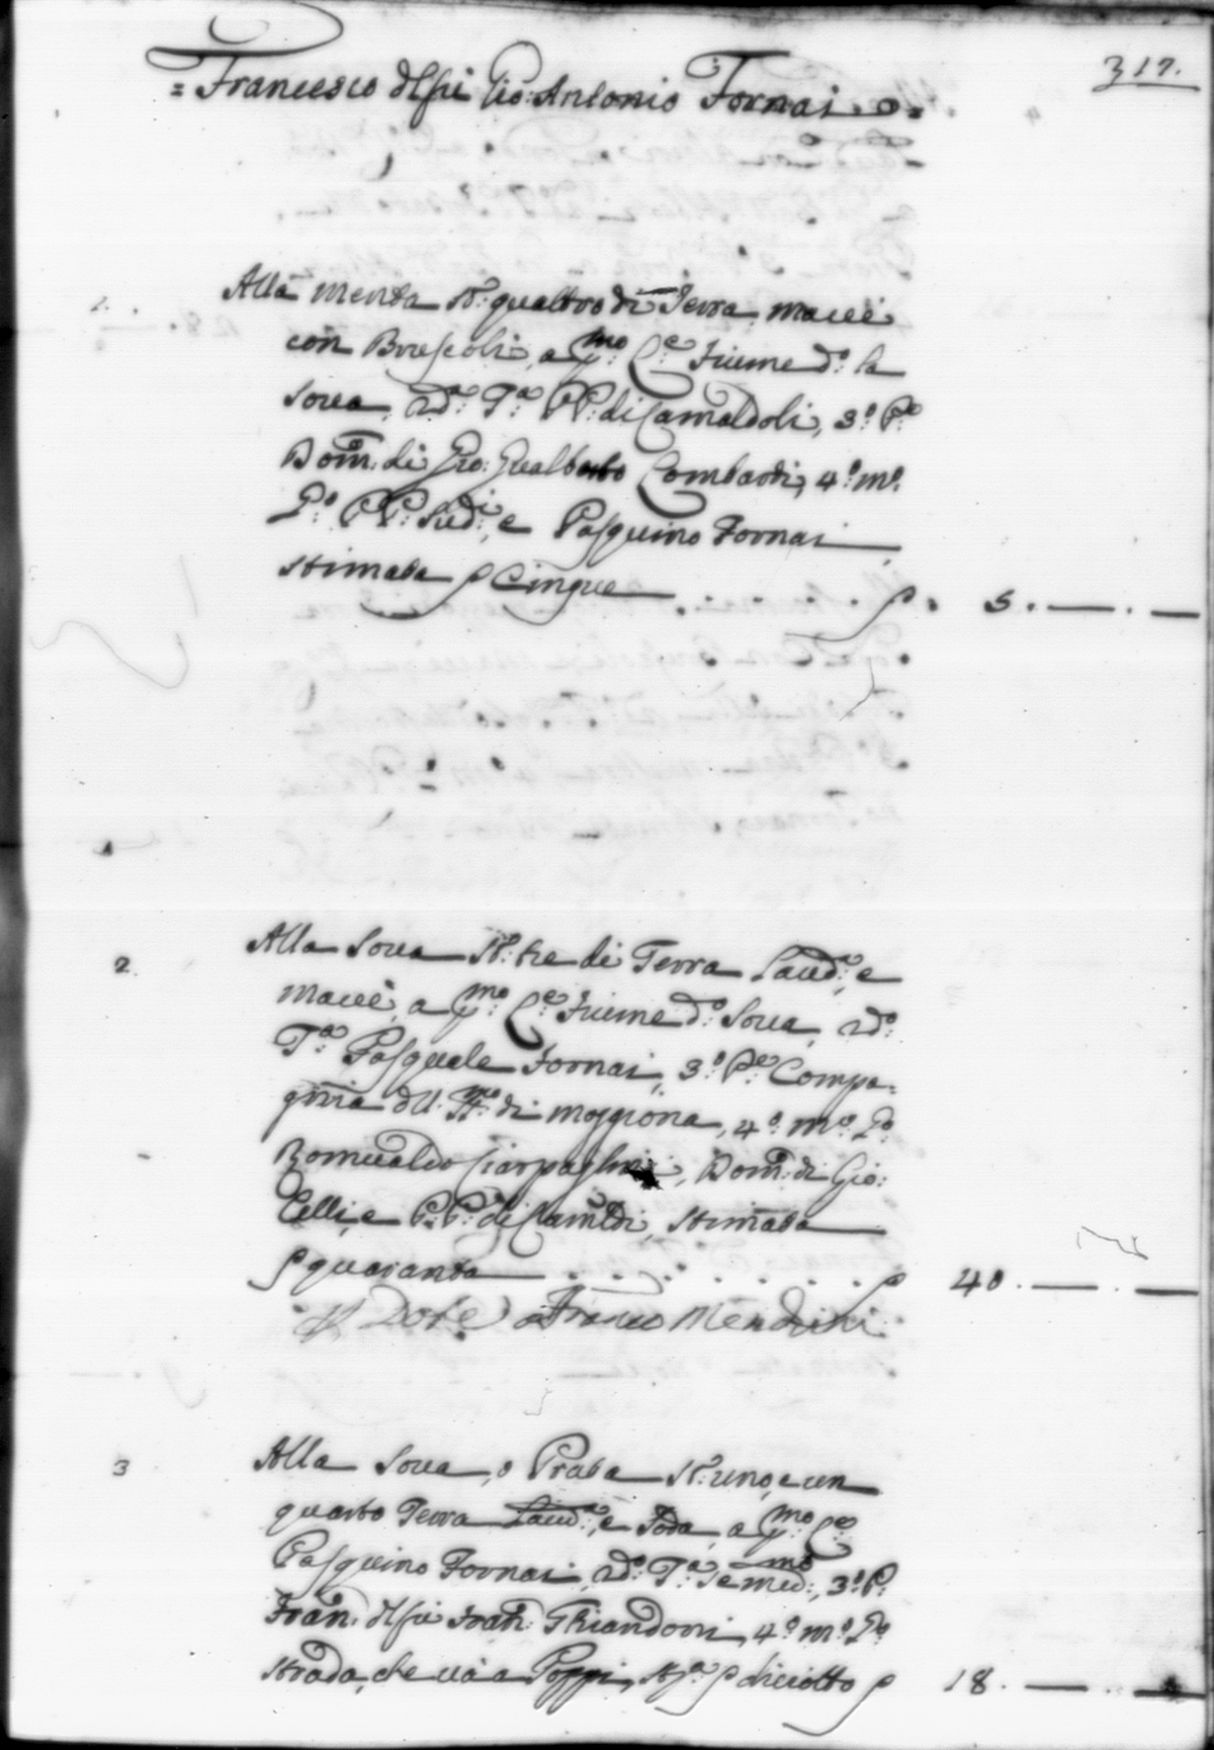 317.
= Francesco dlfù Gio: Antonio Fornai. o =
Alla Menta St: quattro di Terra Macc:
con Bruscoli, a p:mo C:e fiume d:o la
Sova, 2do: T:a PP: di Camaldoli, 3:o P:e
Dom: di Gio: Gualberto Lombardi, 4:o m:o
L:o PP: Sud:i, e Pasquino Fornai
stimata p Cinque . . . . . p. 5. — . —
2 Alla Sova St: tre di Terra Laud:a, e
Macc:, a p:mo C:e fiume d:o Sova, 2do:
T:a Pasquale Fornai, 3:o P:e Compa=
gnia dll: di Moggiona, 4:o m:o L:o
Romualdo Ciarpaglini, Dom: di Gio:
Celli, e P:P: di Camldi, stimata
p quaranta . . . . . . p 40. — . —
Dote a Franco Mendini
3 Alla Sova, o Prata St: uno, e un
quarto Terra Laud:a, e Soda, a p:mo C:e
Pasquino Fornai, 2do: T:a Semed:mo, 3:o P:
Fran: dlfù Fran: Ghiandoni, 4:o m:o L:o
strada, che và a Poppi, st:a p diciotto p 18. — . —